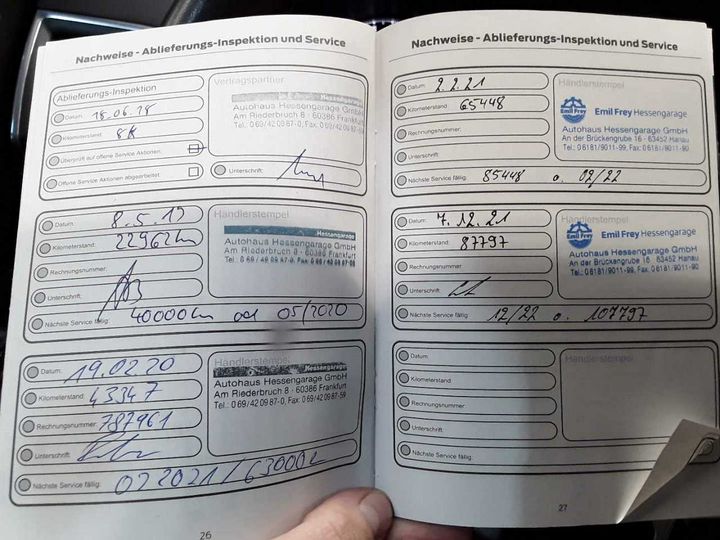 Nachweise - Ablieferungs-Inspektion und Service
Ablieferungs-Inspektion
Datum: 18.06.18
Kilometerstand: 8k
Überprüft auf offene Service Aktionen:
Offene Service Aktionen abgearbeitet:
Vertragspartner
Hessengarage
Autohaus Hessengarage GmbH
Am Riederbruch 8 - 60386 Frankfurt
Tel.: 0 69/42 09 87-0, Fax: 0 69/42 09 87-59
Unterschrift:
Datum: 8.5.19
Kilometerstand: 22962km
Rechnungsnummer:
Unterschrift:
Nächste Service fällig: 40000km od 05/2020
Händlerstempel
Hessengarage
Autohaus Hessengarage GmbH
Am Riederbruch 8 - 60386 Frankfurt
Tel.: 0 69 / 42 09 87-0, Fax: 0 69/42 09 87-59
Datum: 19.02.20
Kilometerstand: 43347
Rechnungsnummer: 787961
Unterschrift:
Nächste Service fällig: 02 2021 / 63000
Händlerstempel
Hessengarage
Autohaus Hessengarage GmbH
Am Riederbruch 8 - 60386 Frankfurt
Tel.: 0 69/42 09 87-0, Fax: 0 69/42 09 87-59
26
Nachweise - Ablieferungs-Inspektion und Service
Datum: 2.2.21
Kilometerstand: 65448
Rechnungsnummer:
Unterschrift:
Nächste Service fällig: 85448 o. 02/22
Händlerstempel
Emil Frey
Emil Frey Hessengarage
Autohaus Hessengarage GmbH
An der Brückengrube 16 - 63452 Hanau
Tel.: 06181/9011-99, Fax: 06181/9011-90
Datum: 7.12.21
Kilometerstand: 87797
Rechnungsnummer:
Unterschrift:
Nächste Service fällig: 12/22 o. 107797
Händlerstempel
Emil Frey
Emil Frey Hessengarage
Autohaus Hessengarage GmbH
An der Brückengrube 16 - 63452 Hanau
Tel.: 06181/9011-99, Fax: 06181/9011-90
Datum:
Kilometerstand:
Rechnungsnummer:
Unterschrift:
Nächste Service fällig:
Händlerstempel
27